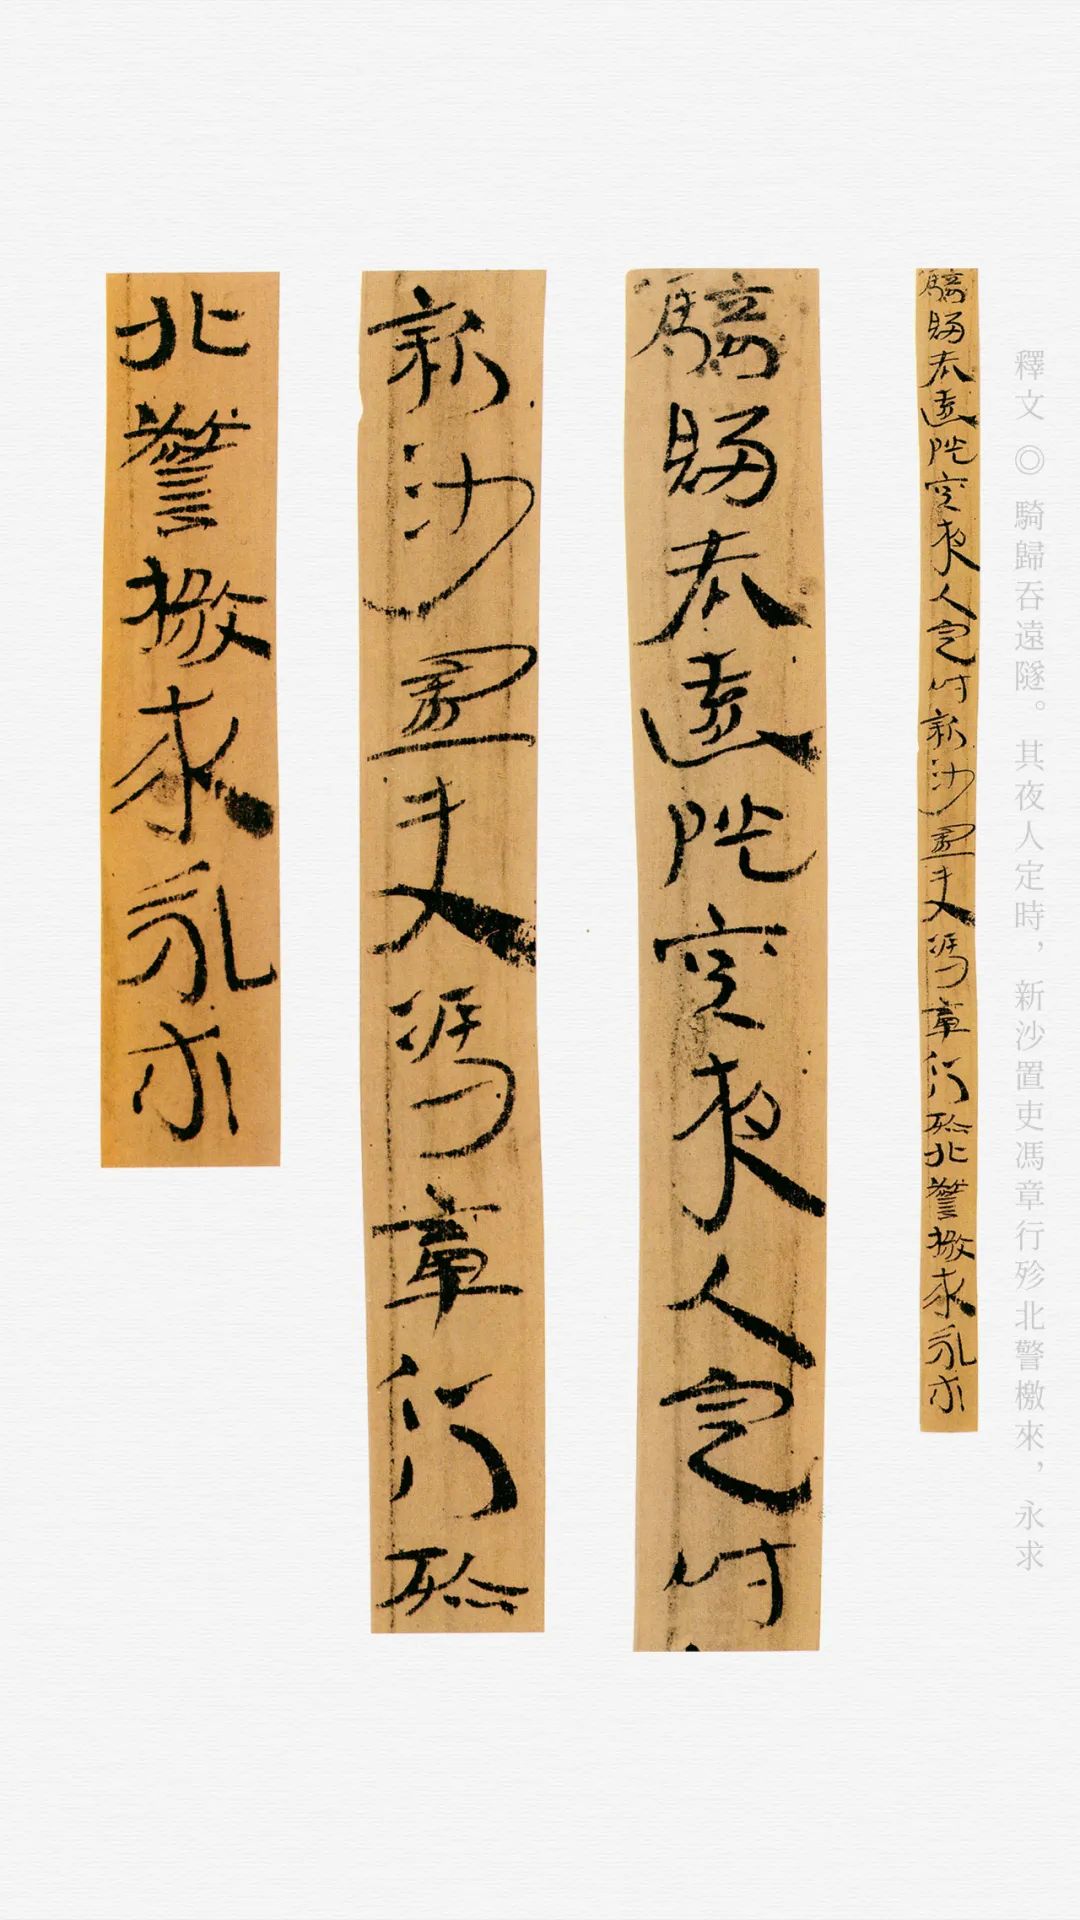 釋文◎騎歸吞遠隧。其夜人定時，新沙置吏馮章行殄北警檄來，永求
騎歸吞遠隧其夜人定時新沙置吏馮章行殄北警檄來永求
騎歸吞遠隧其夜人定時
新沙置吏馮章行殄
北警檄來永求